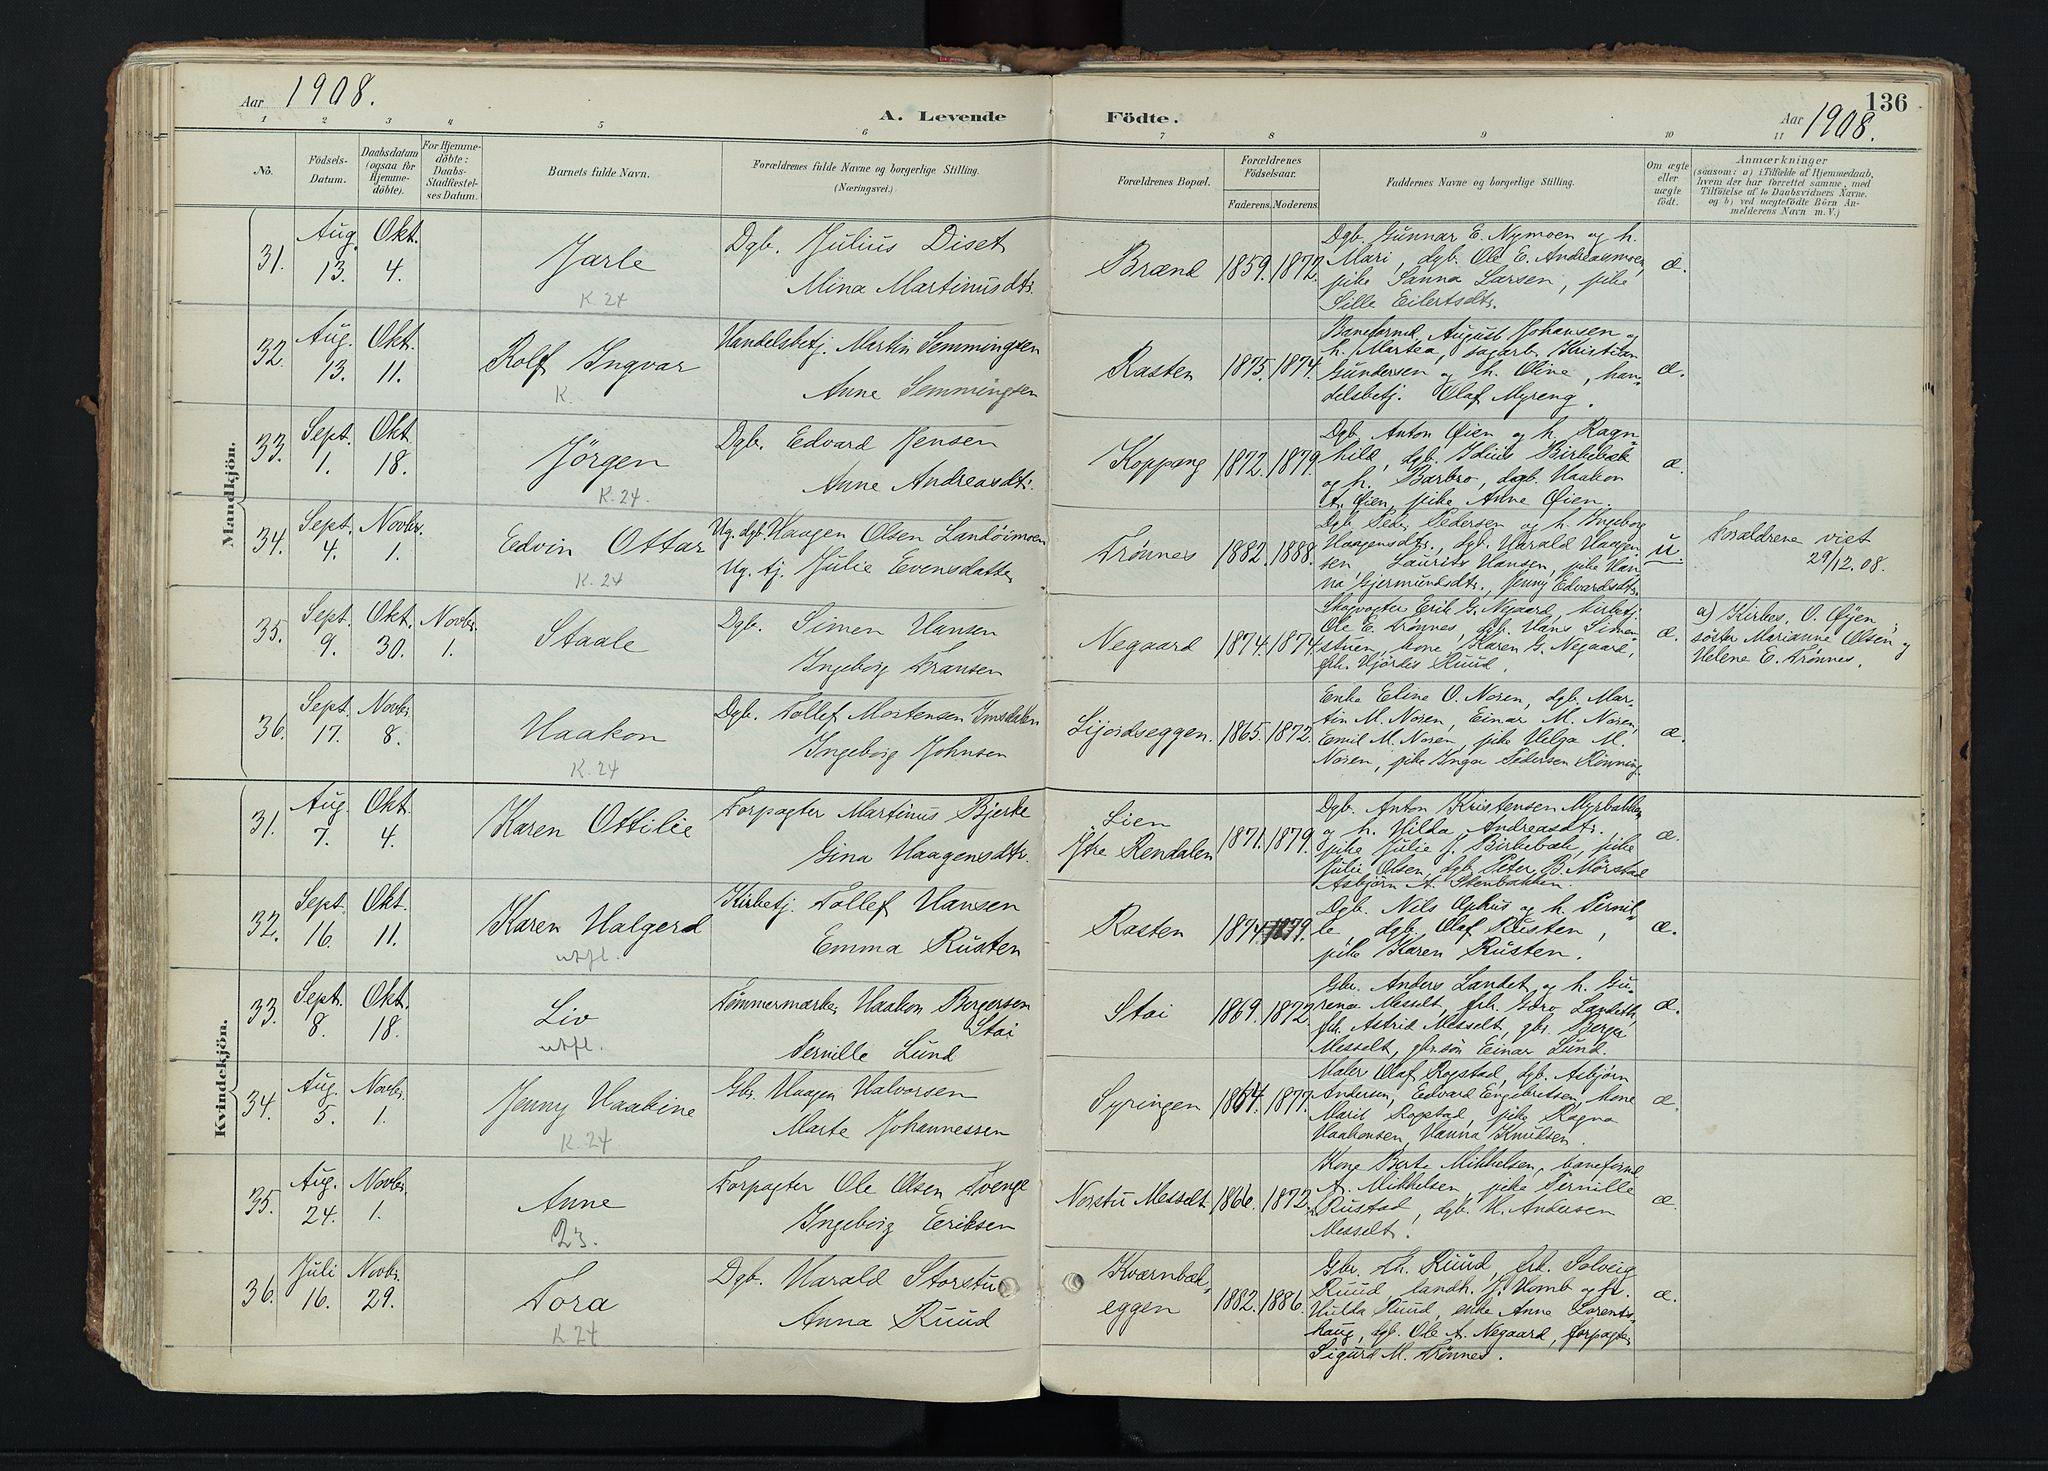 Aar 1908.
A. Levende Fødte.
136
Aar 1908.
1 2 3 4 5 6 7 8 9 10 11
No.
Födsels-Datum.
Daabsdatum (ogsaa for Hjemmedöbte).
For Hjemmedöbte: Daabs-Stadfæstelses Datum.
Barnets fulde Navn.
Forældrenes fulde Navne og borgerlige Stilling. (Næringsvei.)
Forældrenes Bopæl.
Forældrenes Födselsaar.
Faderens. Moderens.
Faddernes Navne og borgerlige Stilling.
Om ægte eller uægte födt.
Anmærkninger
(saasom: a) i Tilfælde af Hjemmedaab, hvem der har forrettet samme, med Tilföielse af to Daabsvidners Navne. og b) ved uægtefödte Börn Anmelderens Navn m. V.)
Mandkjön.
31. Aug. 13. Okt. 4. Jarle K. 24 Dgb. Julius Diset
Mina Martinusdtr. Brænd 1859. 1872. Dgb. Gunnar E. Nymoen og h.
Mari, dgb. Ole E. Andreasmoen,
pike Sanna Larsen, pike
Sille Eilertsdtr. æ.
32. Aug. 13. Okt. 11. Rolf Ingvar K. Handelsbetj. Martin Semmingsen
Anne Semmingsen Rasten 1875. 1874. Baneformd. August Johansen og
h. Martea, sagarb. Kristian
Gundersen og h. Oline, han-
delsbetj. Olaf Myreng. æ.
33. Sept. 1. Okt. 18. Jørgen K. 24. Dgb. Edvard Jensen
Anne Andreasdtr. Koppang 1872. 1879. Dgb. Anton Øien og h. Ragn-
hild, dgb. Idius Birkebæk
og h. Barbro, dgb. Haakon
A. Øien, pike Anne Øien. æ.
34. Sept. 4. Novbr. 1. Edvin Ottar K. 24 Ug. dgb. Haagen Olsen Landøimoen
Ug. tj. Julie Evensdatter Trønnes 1882. 1888. Dgb. Peder Pedersen og h. Ingeborg
Haagensdtr., dgb. Harald Haagen-
sen, Laurits Hansen, pike Han-
na Gjermundsdtr., Jenny Edvardsdtr. u. Forældrene viet
29/12.08.
35. Sept. 9. Okt. 30. Novbr. 1. Staale Dgb. Simen Hansen
Ingeborg Fransen Negaard 1874. 1874 Skogvogter Erik G. Negaard, kirketj.
Ole E. Trønnes, dgb. Hans Simen-
stuen, kone Karen G. Negaard,
frk. Hjördis Ruud. æ. a) Kirkes. O. Øyen;
søstr. Marianne Olsen og
Helene E. Trønnes.
36. Sept. 17. Novbr. 8. Haakon K. 24 Dgb. Tollef Mortensen Imsdalen
Ingeborg Johnsen Lijordseggen. 1865. 1872. Enke Eline O. Noren, dgb. Mar-
tin M. Noren, Einar M. Noren,
Emil M. Noren, pike Helga M.
Noren, pike Inga Pedersen Rönning. æ.
Kvindekjön.
31. Aug. 7. Okt. 4. Karen Ottilie Forpagter Martinus Bjerke
Gina Haagensdtr. Lien
Ytre Rendalen 1871. 1879. Dgb. Anton Kristensen Myrbakken
og h. Hilda Andreasdtr.
pike Julie J. Birkebæk, pike
Julie Olsen, dgb. Peter B. Mørstad
Asbjørn A. Stenbakken. æ.
32. Sept. 16. Okt. 11. Karen Halgerd utfl. Kirketj. Tollef Hansen
Emma Rusten Rasten 1874. 1879. Dgb. Nils Ophus og h. Pernil-
le, dgb. Olaf Rusten,
pike Karen Rusten. æ.
33. Sept. 8. Okt. 18. Liv utfl. Tömmermærker Haakon Bergersen
Stai
Pernille Lund Stai 1869. 1872. Gbr. Anders Landet og h. Gu-
rena Messelt, frk. Guro Landeth,
frk. Astrid Messelt, gbr. Berger
Messelt, gbr.sön Einar Lund. æ.
34. Aug. 5. Novbr. 1. Jenny Haakine K. 24 Gbr. Haagen Halvorsen
Marte Johannessen Syringen 1864. 1877. Maler Olaf Rogstad, dgb. Asbjørn
Andersen, Edvard Engebretsen, kone
Marit Rogstad, pike Ragna
Haakonsen, Hanna Knudsen. æ.
35. Aug. 24. Novbr. 1. Anne 23. Forpagter Ole Olsen Tvenge
Ingeborg Eriksen Norstu Messelt 1866. 1872. Kone Berte Mikkelsen, baneformd.
A. Mikkelsen, pike Pernille
Rustad, dgb. H. Andersen
Messelt. æ.
36. Juli 16. Novbr. 29. Tora K. 24 Dgb. Harald Storstu
Anna Ruud Kværnbæk-
eggen 1882. 1886. Gbr. Th. Ruud, frk. Solveig
Ruud, landh. J. Homb og fr.
Hulda Ruud, enke Anne Lorents-
haug, dgb. Ole A. Negaard, forpagter
Sigurd M. Trønnes. æ.